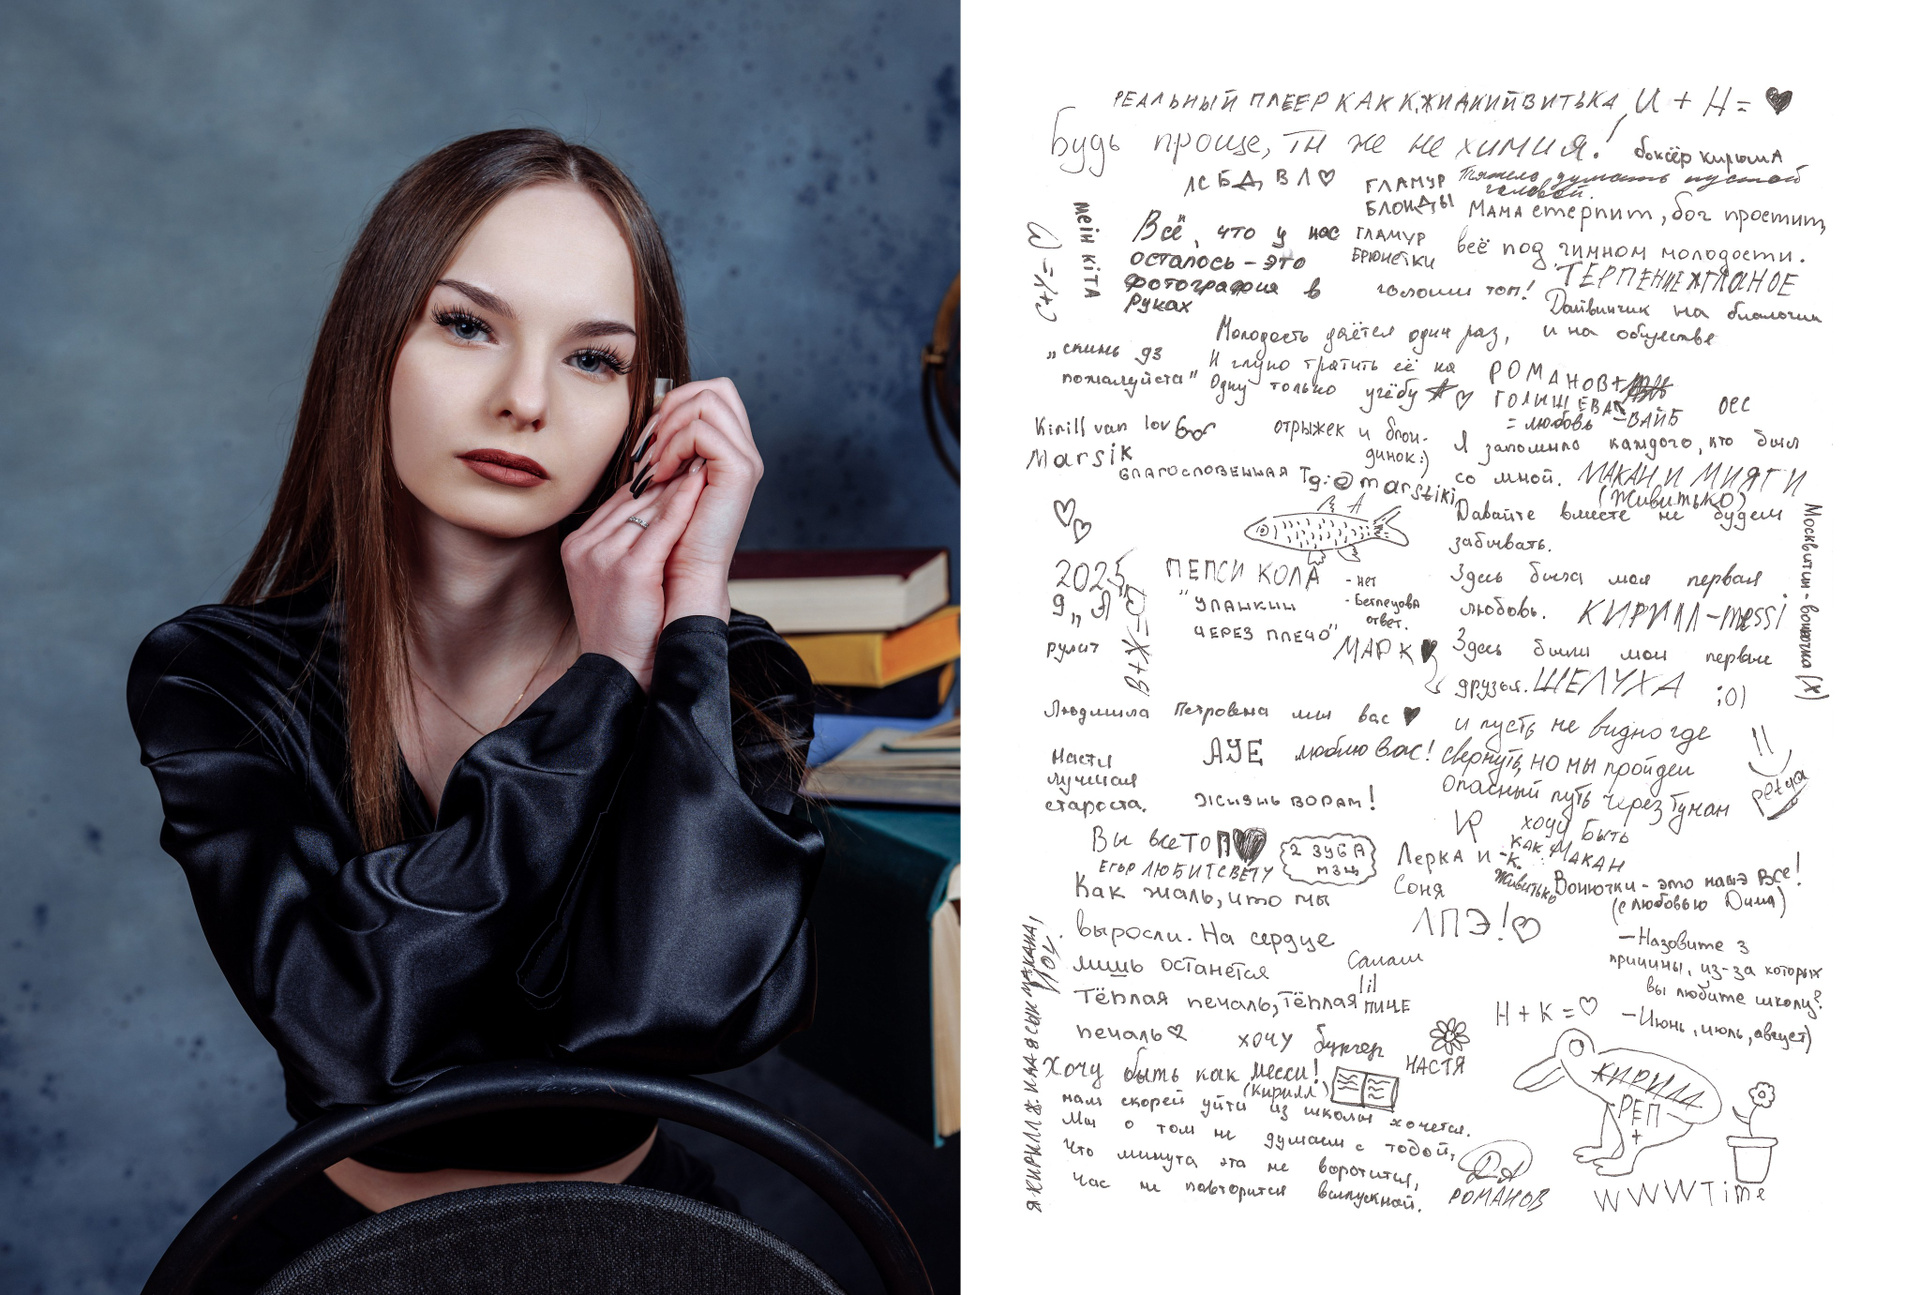 РЕАЛЬНЫЙ ПЛЕЕР КАК К.ЖИДКИЙ ВИТЬКА
И + Н = ♥
Будь проще, ты же не химия!
боксёр Кирюша
ЛСБДВЛ♡
ГЛАМУР
БЛОНДЫ
Тяжело думать пустой
головой.
Мама стерпит, бог простит,
всё под гимном молодости.
МЕЙН КІТА
Всё, что у нас
осталось - это
фотография в
руках
ГЛАМУР
БРЮНЕТКИ
голоши топ!
ТЕРПЕНИЕ ЖГЛАНОЕ
Дайвинчик на биологии
и на обществе
Молодость даётся один раз,
И глупо тратить её на
Одну только учёбу ♡
„скинь дз
пожалуйста"
РОМАНОВ+
ГОЛИЩЕВА
= любовь = ВАЙБ
Kirill van lov
Marsik
отрыжек и блон-
динок:)
Я запомнил каждого, кто был
со мной.
БЛАГОСЛОВЕННАЯ
Tg:@marstiki
МАКАН И МИЯГИ
(Живитько)
Давайте вместе не будем
забывать.
2025
9 „Я"
рулит
ПЕПСИ КОЛА
- нет
ответ.
"УЛАНКИН
ЧЕРЕЗ ПЛЕЧО"
МАРК♥
Здесь была моя первая
любовь.
КИРИЛЛ-messi
Здесь были мои первые
друзья.
ШЕЛУХА
;0)
Москвитин - вонючка (Х)
Людмила Петровна мы вас ♥
АУЕ
люблю Вас!
Настя
лучшая
староста.
жизнь ворам!
и пусть не видно где
свернуть, но мы пройдем
опасный путь через туман
petya
Вы все ТОП♥
ЕГОР ЛЮБИТ СВЕТУ
2 ЗУБА
МЗЦ
Лерка и -К
Соня
хочу быть
как Макан
Живитько
Вонючки - это наше все!
(с любовью Дима)
ЛПЭ!♡
Как жаль, что мы
выросли. На сердце
лишь останется
Тёплая печаль, тёплая
печаль♡
Салам
lil
ПИЧЕ
хочу бургер
НАСТЯ
- Назовите 3
причины, из-за которых
вы любите школу?
- Июнь, июль, август)
Н + К = ♡
Хочу быть как месси!
(Кирилл)
нам скорей уйти из школы хочется.
Мы о том не думаем с тобой,
Что минута эта не воротится,
Час не повторится выпускной.
РОМАНОВ
КИРИЛЛ
РЕП
+
WWWTime